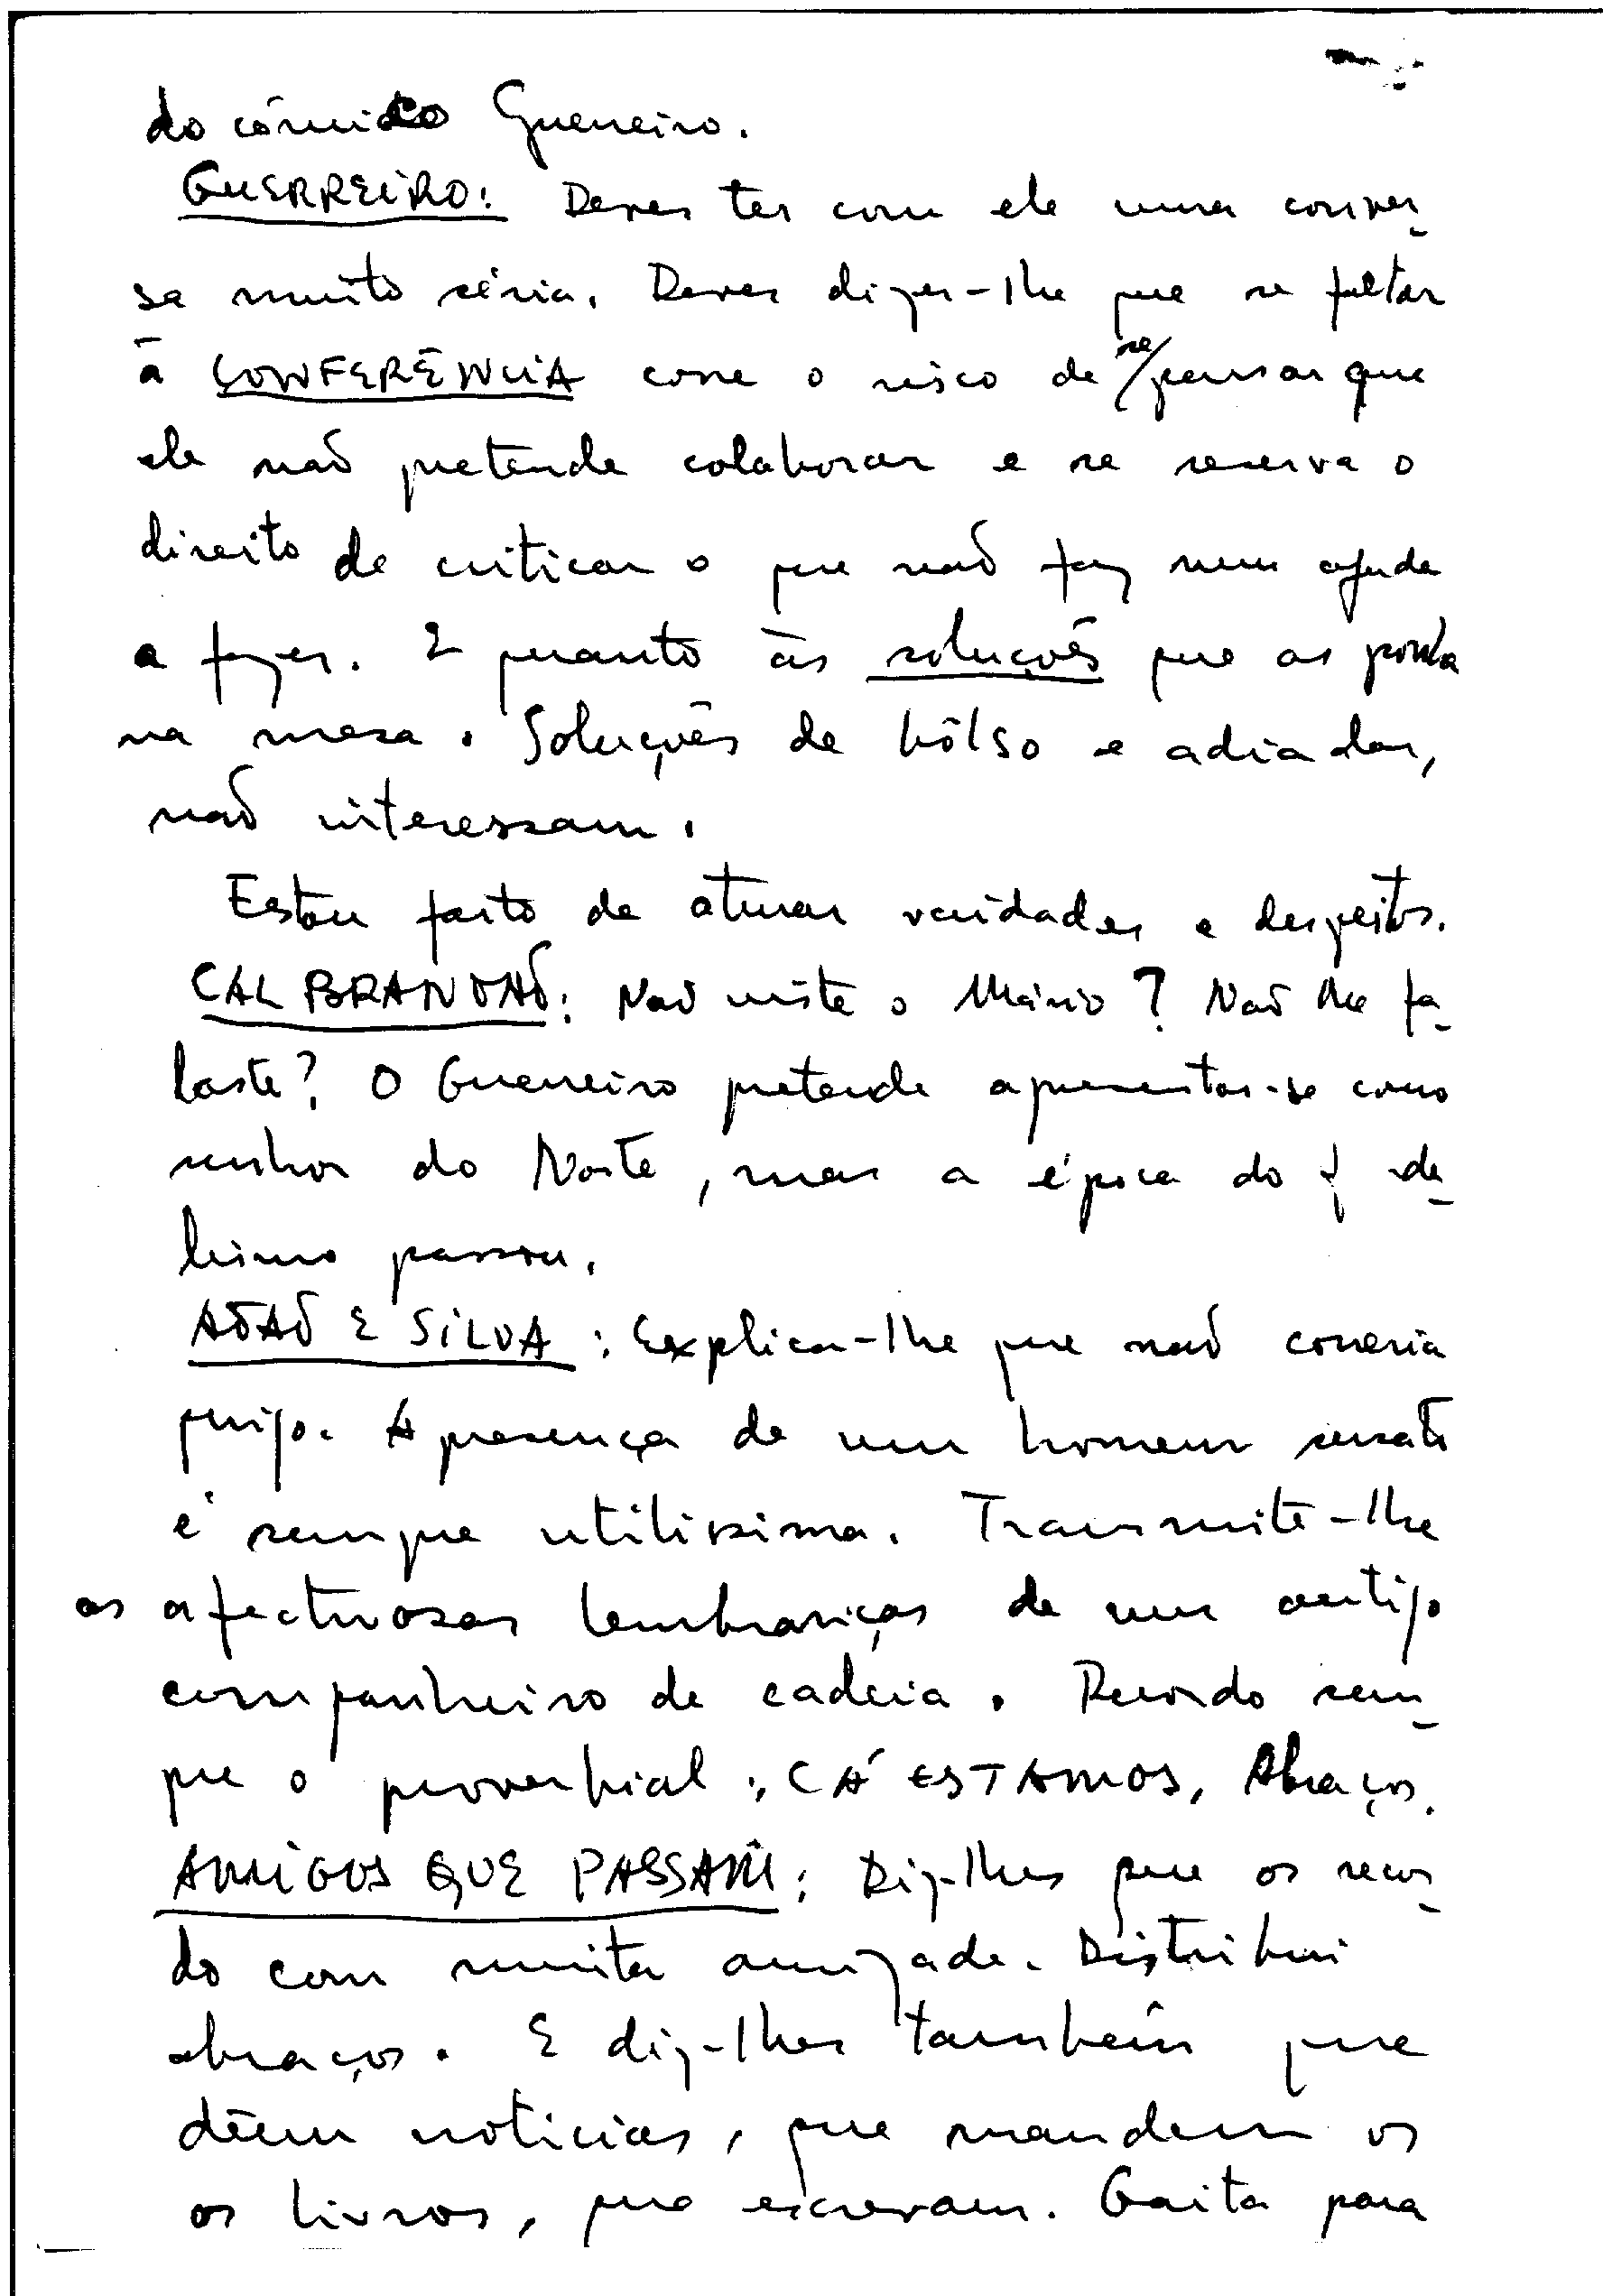 do cómico Guerreiro.
GUERREIRO: Deves ter com ele uma conver-
sa muito séria. Deves dizer-lhe que se faltar
à CONFERÊNCIA corre o risco de se/pensar que
ele não pretende colaborar e se reserva o
direito de criticar o que não faz nem ajuda
a fazer. E quanto às soluções que as ponha
na mesa. Soluções de bôlso e adiadas,
não interessam.
Estou farto de aturar vaidades e despeitos.
CAL BRANDÃO: Não viste o Mário? Não lhe fa-
laste? O Guerreiro pretende apresentar-se como
senhor do Norte, mas a época do
passou.
ADÃO E SILVA: Explica-lhe que não correria
perigo. A presença de um homem sensato
é sempre utilissima. Transmite-lhe
as afectuosas lembranças de um antigo
companheiro de cadeia. Recordo sem-
pre o proverbial: CÁ ESTAMOS. Abraços.
AMIGOS QUE PASSAM: Diz-lhes que os recor-
do com muita amizade. Distribui
abraços. E diz-lhes também que
dêem noticias, que mandem os
os livros, que escrevam. Gaita para